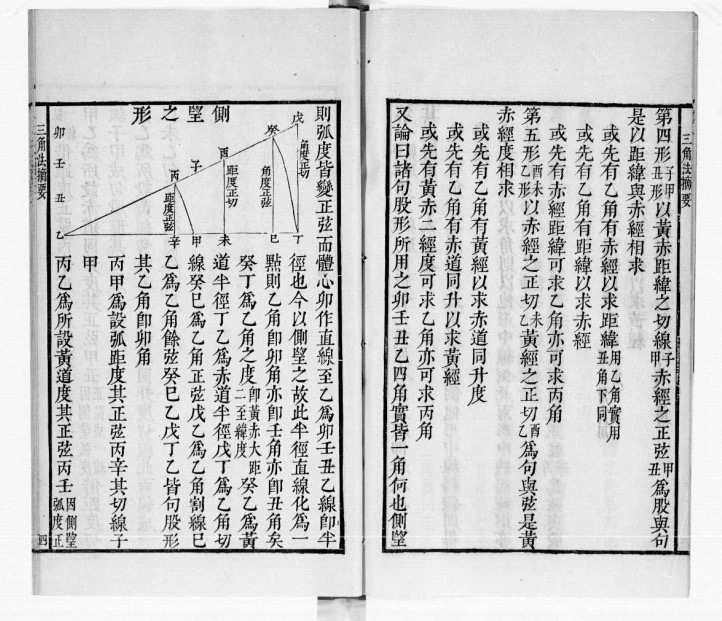 三角法摘要
第四形子甲丑形以黃赤距緯之切線子甲赤經之正弦甲丑為股與句
是以距緯與赤經相求
或先有乙角有赤經以求距緯用乙角實用丑角下同
或先有乙角有距緯以求赤經
或先有赤經距緯可求乙角亦可求丙角
第五形酉未乙形以赤經之正切乙未黃經之正切乙酉為句與弦是黃
赤經度相求
或先有乙角有黃經以求赤道同升度
或先有乙角有赤道同升以求黃經
或先有黃赤二經度可求乙角亦可求丙角
又論曰諸句股形所用之卯壬丑乙四角實皆一角何也側朢
則弧度皆變正弦而體心卯作直線至乙為卯壬丑乙線卽半
徑也今以側朢之故此半徑直線化為一
點則乙角卽卯角亦卽壬角亦卽丑角矣
癸丁為乙角之度卽黃赤大距二至緯度癸乙為黃
道半徑丁乙為赤道半徑戊丁為乙角切
線癸巳為乙角正弦戊乙為乙角割線巳
乙為乙角餘弦癸巳乙戊丁乙皆句股形
其乙角卽卯角
丙甲為設弧距度其正弦丙辛其切線子
甲
丙乙為所設黃道度其正弦丙壬因側朢弧度正
戊
角度正切
丁
癸
角度正弦
巳
側朢之形
酉
距度正切
未
子
甲
丙
距度正弦
辛
卯
壬
丑
乙
三角法摘要
四